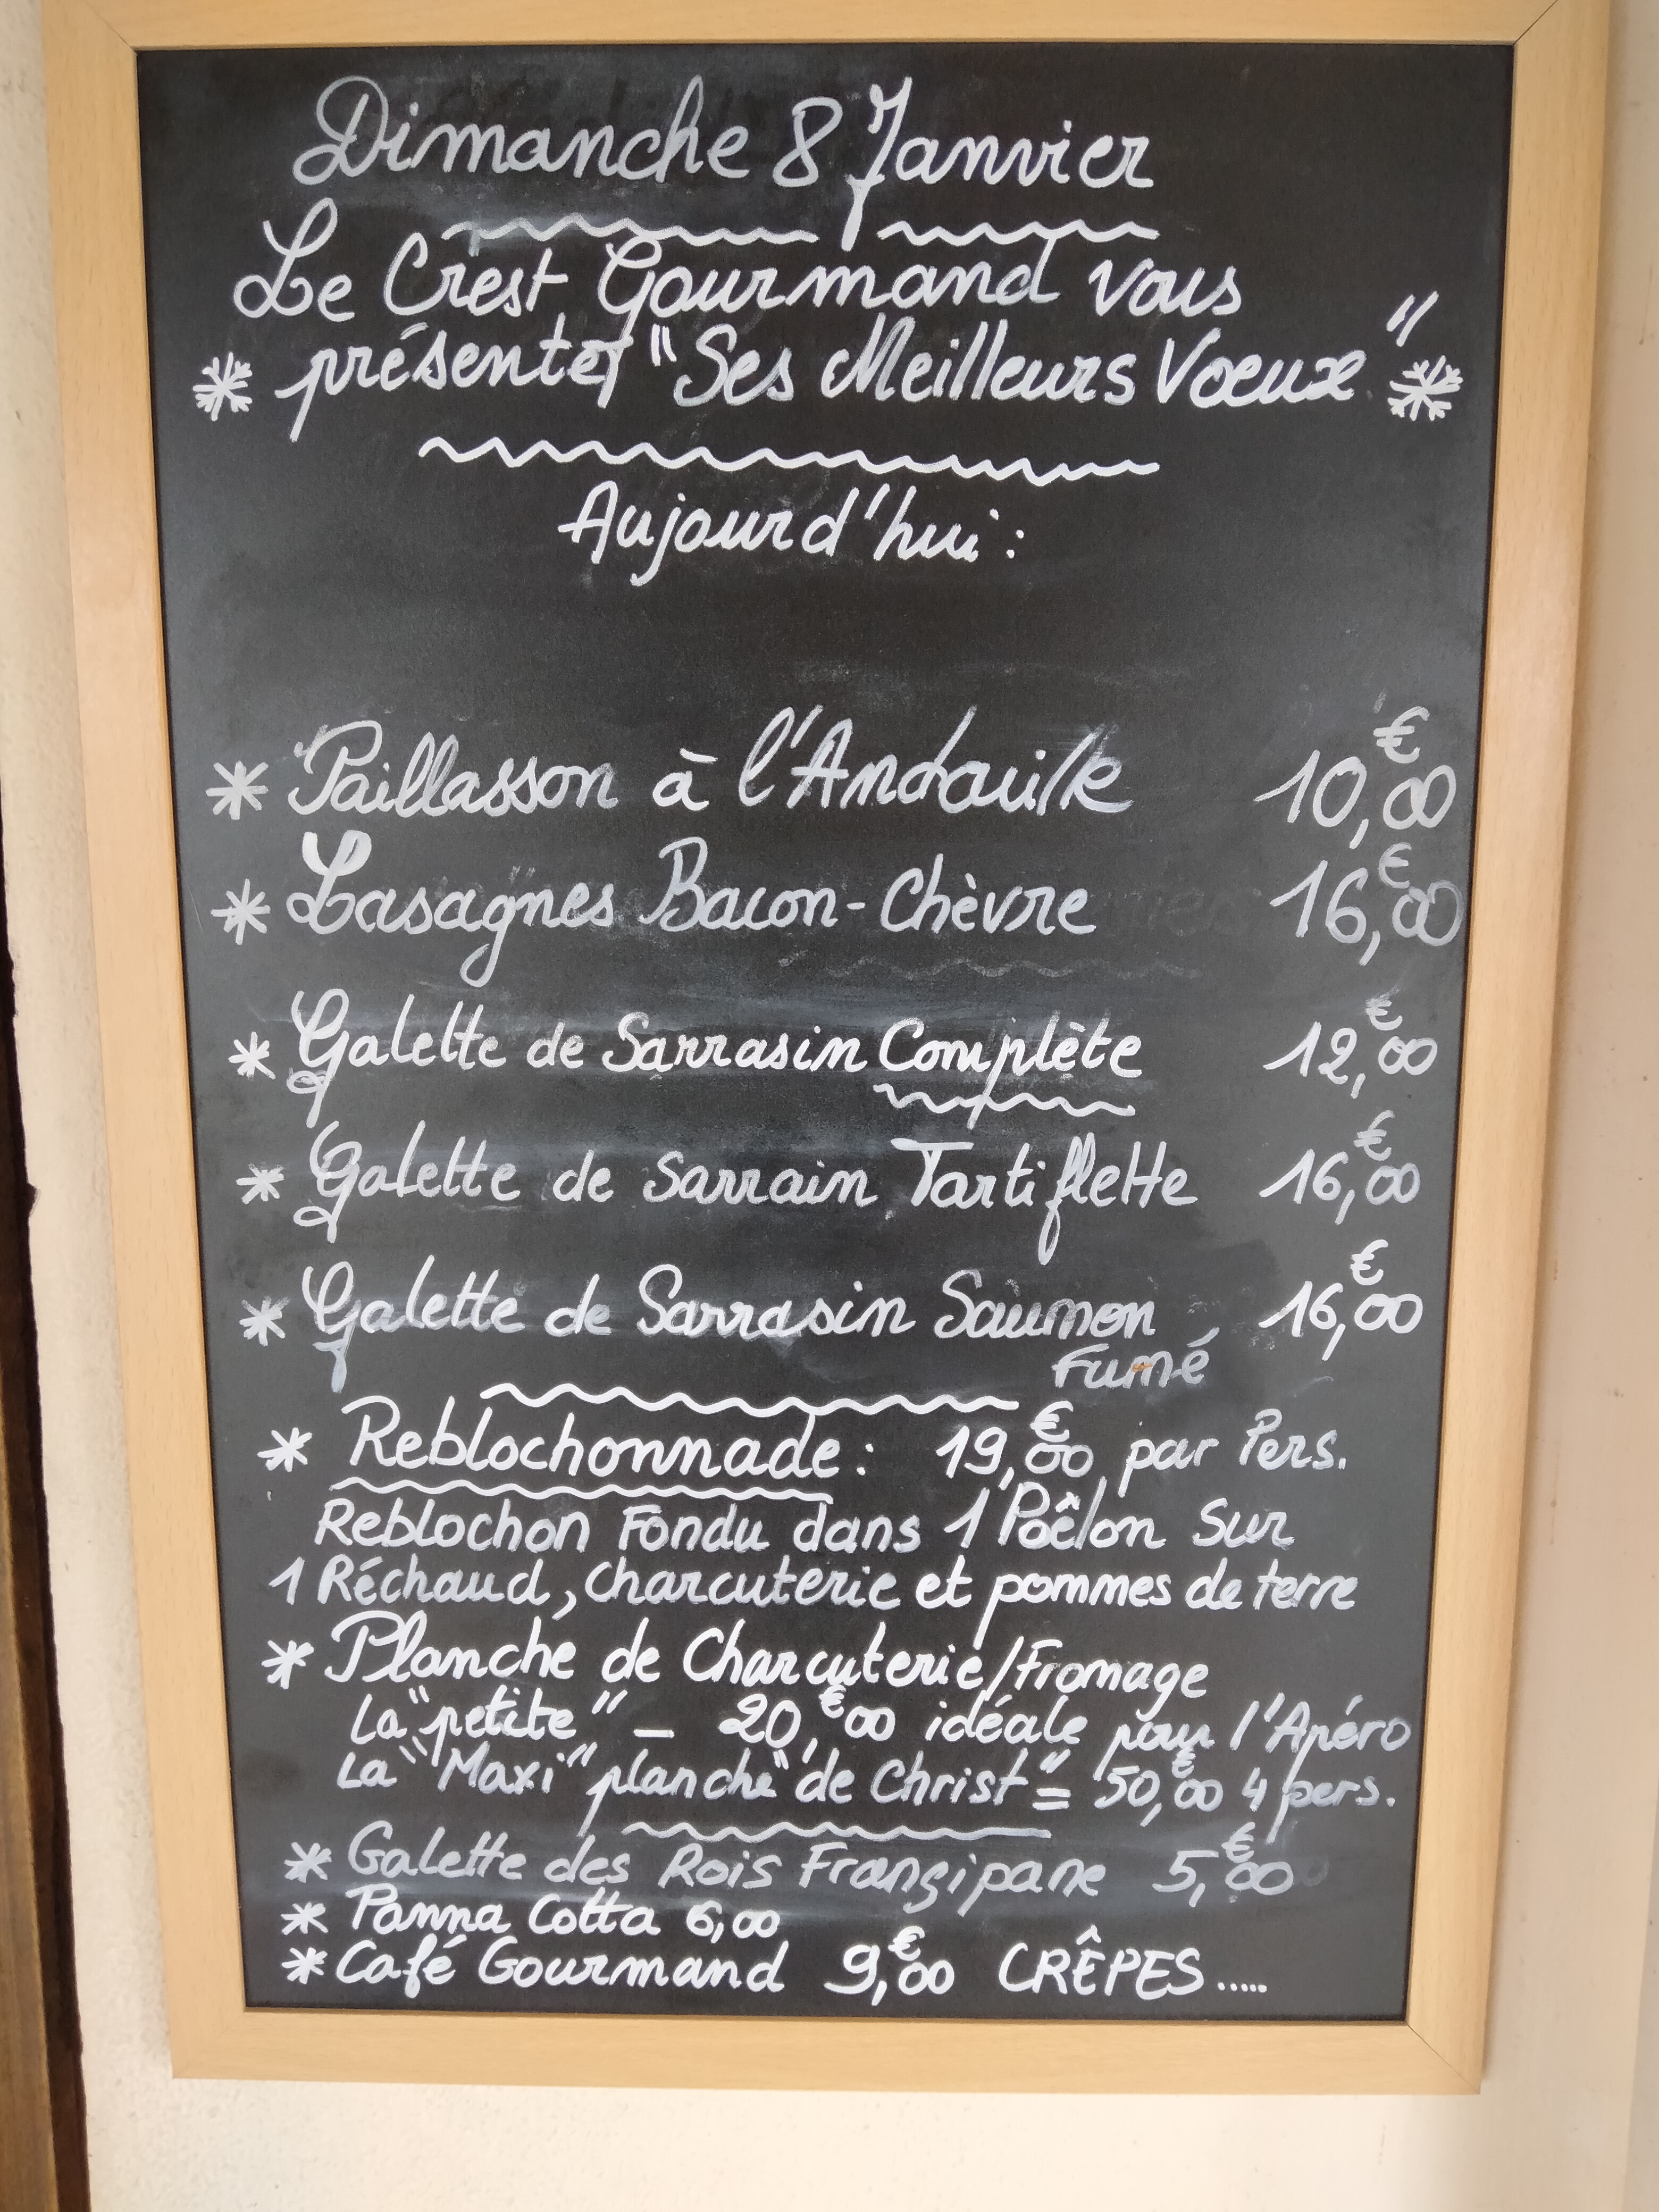 Dimanche 8 Janvier
Le Crest Gourmand vous
* présente "Ses Meilleurs Voeux" *
Aujourd'hui :
* Paillasson à l'Andouille 10,00 €
* Lasagnes Bacon-Chèvre 16,00 €
* Galette de Sarrasin Complète 12,00 €
* Galette de Sarrain Tartiflette 16,00 €
* Galette de Sarrasin Saumon 16,00 €
Fumé
* Reblochonnade : 19,00 € par Pers.
Reblochon Fondu dans 1 Poêlon Sur
1 Réchaud, charcuterie et pommes de terre
* Planche de Charcuterie/Fromage
La "petite" – 20,00 € idéale pour l'Apéro
La "Maxi" planche "de Christ" = 50,00 € 4 pers.
* Galette des Rois Frangipane 5,00 €
* Panna Cotta 6,00
* Café Gourmand 9,00 € CRÊPES.....